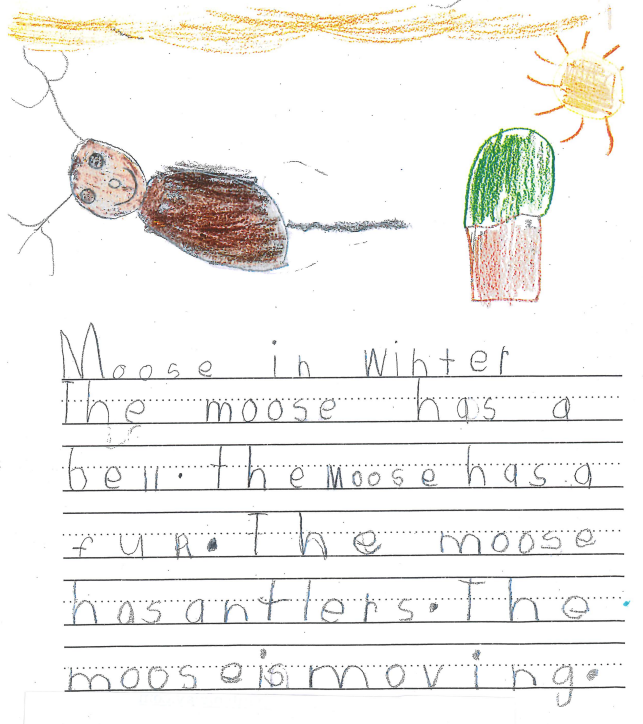 Moose in Winter
The moose has a
bell. The Moose has a
fur. The moose
has antlers. The
moose is moving.